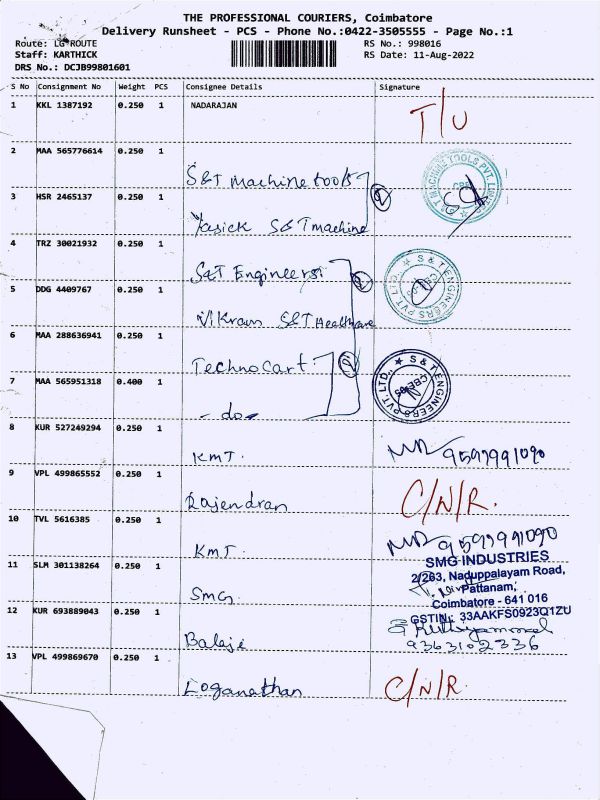 THE PROFESSIONAL COURIERS, Coimbatore
Delivery Runsheet - PCS - Phone No.:0422-3505555 - Page No.:1
Route: LG ROUTE RS No.: 998016
Staff: KARTHICK RS Date: 11-Aug-2022
DRS No.: DCJB99801601
S No Consignment No Weight PCS Consignee Details Signature
1 KKL 1387192 0.250 1 NADARAJAN T/U
2 MAA 565776614 0.250 1 S&T machine tools
3 HSR 2465137 0.250 1 S&T machine
4 TRZ 30021932 0.250 1 S&T Engineers
5 DDG 4409767 0.250 1 Vikram S&T Healthcare
6 MAA 288636941 0.250 1 Technocart
7 MAA 565951318 0.400 1 - do -
8 KUR 527249294 0.250 1 KMT. 9597991090
9 VPL 499865552 0.250 1 Rajendran C/N/R.
10 TVL 5616385 0.250 1 KMT. 9597991090
11 SLM 301138264 0.250 1 SMG.
SMG INDUSTRIES
2/263, Naduppalayam Road,
Pattanam,
Coimbatore - 641 016
GSTIN: 33AAKFS0923Q1ZU
12 KUR 693889043 0.250 1 Balaji 9363102336
13 VPL 499869670 0.250 1 Loganathan C/N/R.
S & T MACHINE TOOLS PVT. LIMITED
S & T ENGINEERS PVT. LTD.,
S & T ENGINEERS PVT. LTD.,
CBE-05